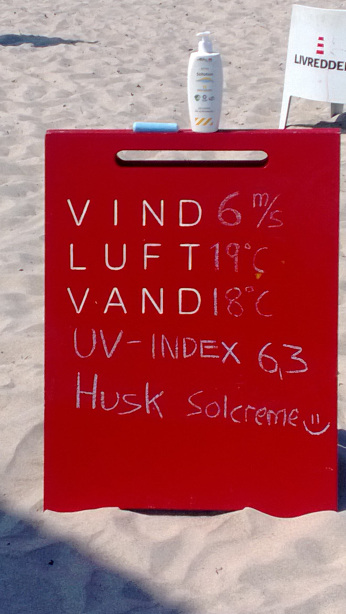 LIVREDDE
VIND 6 m/s
LUFT 19°C
VAND 18°C
UV-INDEX 6,3
Husk Solcreme